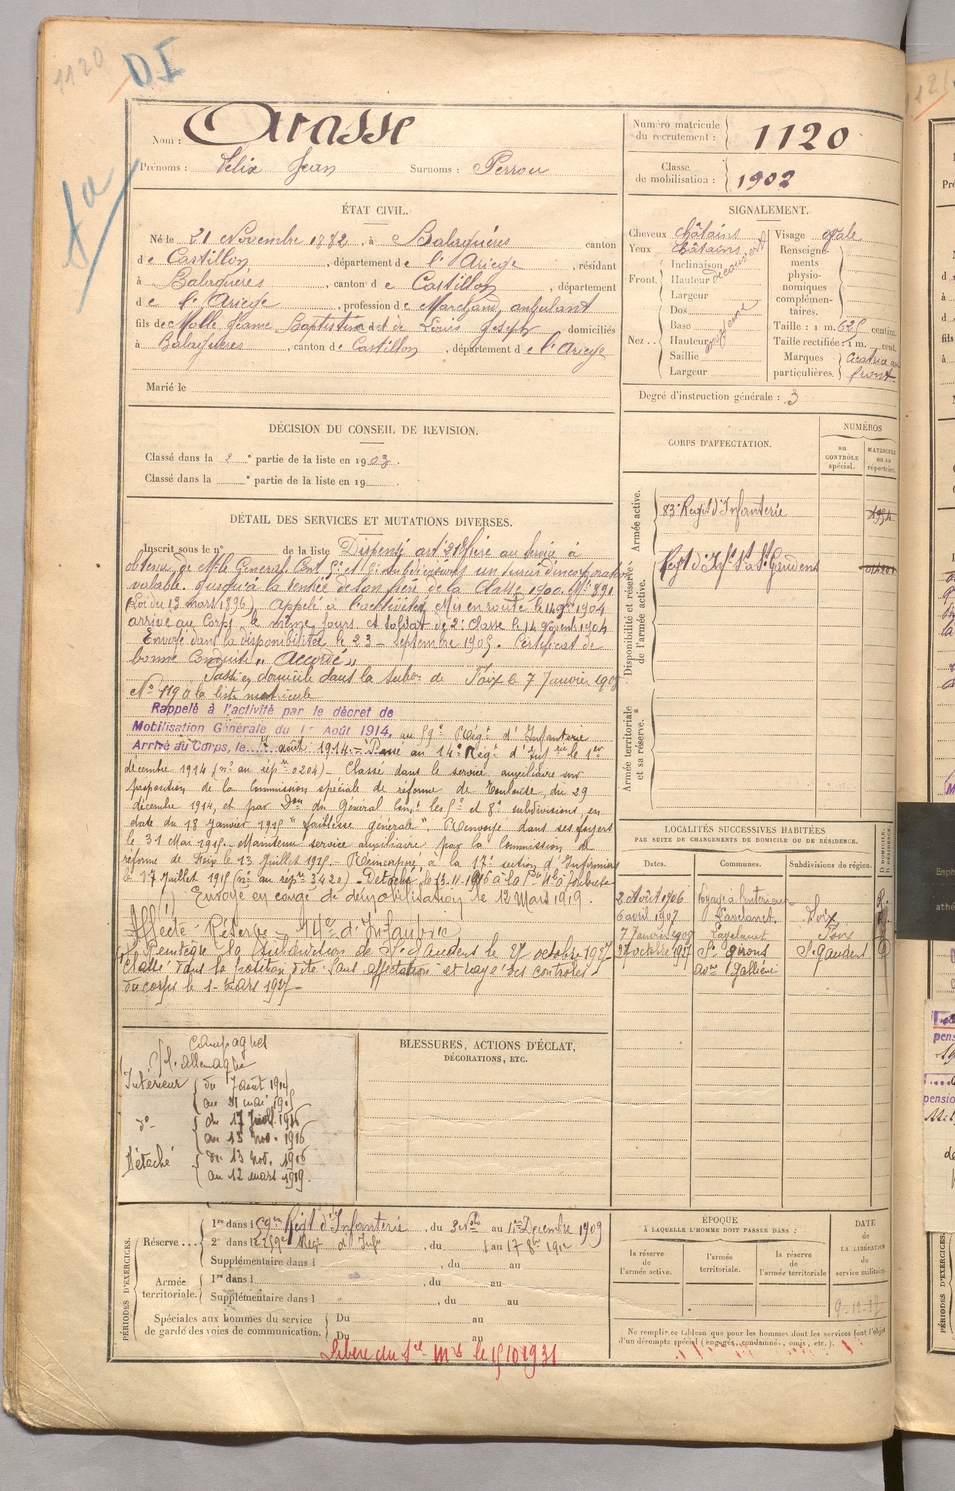 1120
DI
Nom : Arasse
Prénoms : Félix Jean Surnoms : Perrou
Numéro matricule du recrutement : 1120
Classe de mobilisation : 1902
ÉTAT CIVIL.
Né le 21 Novembre 1882, à Balaguères canton
de Castillon, département de l'Ariège, résidant
à Balaguères, canton de Castillon, département
de l'Ariège, profession de Marchand ambulant
fils de Jeanne Baptistine et de Louis Joseph domiciliés
à Balaguères, canton de Castillon, département de l'Ariège
Marié le
SIGNALEMENT.
Cheveux châtains Visage ovale
Yeux châtains Renseignements physionomiques complémentaires.
Front. Inclinaison
Hauteur découvert
Largeur
Nez.. Dos
Base
Hauteur moyenne
Saillie
Largeur
Taille : 1 m. 625 centim.
Taille rectifiée : 1 m. cent.
Marques particulières. Cicatrice au front
Degré d'instruction générale : 3
DÉCISION DU CONSEIL DE REVISION.
Classé dans la 2e partie de la liste en 1903.
Classé dans la e partie de la liste en 19
CORPS D'AFFECTATION.
NUMÉROS
au CONTRÔLE spécial.
MATRICULE ou au répertoire.
Armée active.
83e Régt d'Infanterie
Disponibilité et réserve de l'armée active.
Régt d'Infie de St Gaudens
Armée territoriale et sa réserve.
DÉTAIL DES SERVICES ET MUTATIONS DIVERSES.
Inscrit sous le no de la liste Dispensé art. 21 frère au service a
obtenu de Mr le Général Comt subdivisions un sursis d'incorporation
valable jusqu'à la rentrée de son frère de la classe 1900 No 891
(Loi du 13 mars 1896) Appelé à l'activité, Mis en route le 14 9bre 1904
arrivé au Corps le même jour et soldat de 2e classe le 14 9bre 1904
Envoyé dans la disponibilité le 23 Septembre 1905. Certificat de
bonne conduite « Accordé »
Passé en domicile dans la subon de Foix le 7 Janvier 1908
No 1190 la liste matricule
Rappelé à l'activité par le décret de
Mobilisation Générale du 1er Août 1914, au 59e Régt d'Infanterie
Arrivé au Corps, le 7 août 1914. - Passé au 14e Régt d'Infrie le 1er
décembre 1914 (no au répre 0204) - Classé dans le service auxiliaire sur
proposition de la Commission spéciale de réforme de Toulouse, du 29
décembre 1914, et par Don du Général Comt les 5e et 8e subdivisions en
date du 18 Janvier 1915 " faiblesse générale ". Renvoyé dans ses foyers
le 31 Mai 1915. Maintenu service auxiliaire par la Commission de
réforme de Foix le 13 Juillet 1915. Réincorporé à la 17e section d'Infirmiers
le 17 Juillet 1915 (no au répre 3420) - Détaché le 13.11.1916 à la
Envoyé en congé de démobilisation le 12 Mars 1919.
Affecté Réserve 14e d'Infanterie
Réintègre la subdivision de St Gaudens le 27 octobre 1927
Classé dans la position dite "sans affectation" et rayé des contrôles
du corps le 1er mars 1927
LOCALITÉS SUCCESSIVES HABITÉES
PAR SUITE DE CHANGEMENTS DE DOMICILE OU DE RÉSIDENCE.
Dates. Communes. Subdivisions de région. D DOMICILE. R RÉSIDENCE.
2 Août 1906 Voyage à l'intérieur R
6 avril 1907 Lavelanet Foix
7 Janvier 1908 Lavelanet Foix
27 octobre 1927 St Girons St Gaudens
avue Galliéni
Campagnes
c/ l'allemagne
Intérieur du 7 août 1914
au 31 mai 1915
do du 17 juill. 1916
au 13 nov. 1916
Détaché du 13 nov. 1916
au 12 mars 1919.
BLESSURES, ACTIONS D'ÉCLAT,
DÉCORATIONS, ETC.
PÉRIODES D'EXERCICES.
Réserve... 1re dans l 59e Régt d'Infanterie, du au 1er Décembre 1909
2e dans l 259e Régt d'Infie, du 1 au 17 8bre 1912
Supplémentaire dans l , du au
Armée territoriale. 1re dans l , du au
Supplémentaire dans l , du au
Spéciales aux hommes du service de garde des voies de communication. Du au
Du au
ÉPOQUE
À LAQUELLE L'HOMME DOIT PASSER DANS :
la réserve de l'armée active.
l'armée territoriale.
la réserve de l'armée territoriale
DATE de LA LIBÉRATION du service militaire.
Ne remplir ce tableau que pour les hommes dont les services font l'objet
d'un décompte spécial (engagés, condamnés, omis, etc.).
Libéré du Sce Mre le 15/10/1931